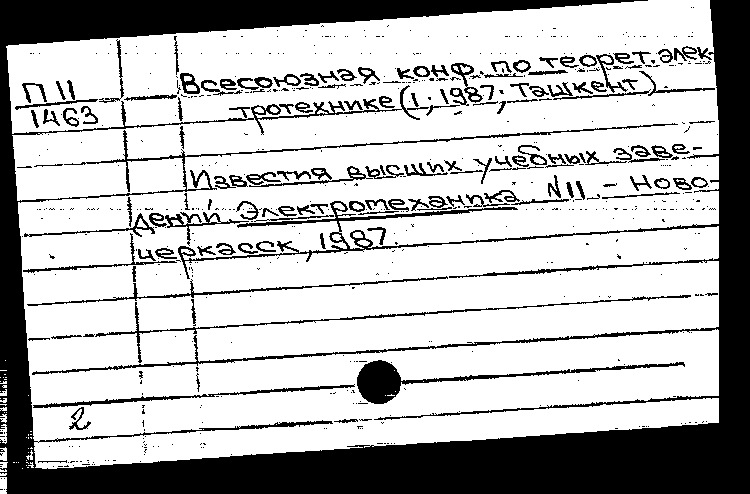 П 11
1463
Всесоюзная конф. по теорет. элек-
тротехнике (1; 1987; Ташкент).
Известия высших учебных заве-
дений. Электромеханика. N11. – Ново-
черкасск, 1987.
2